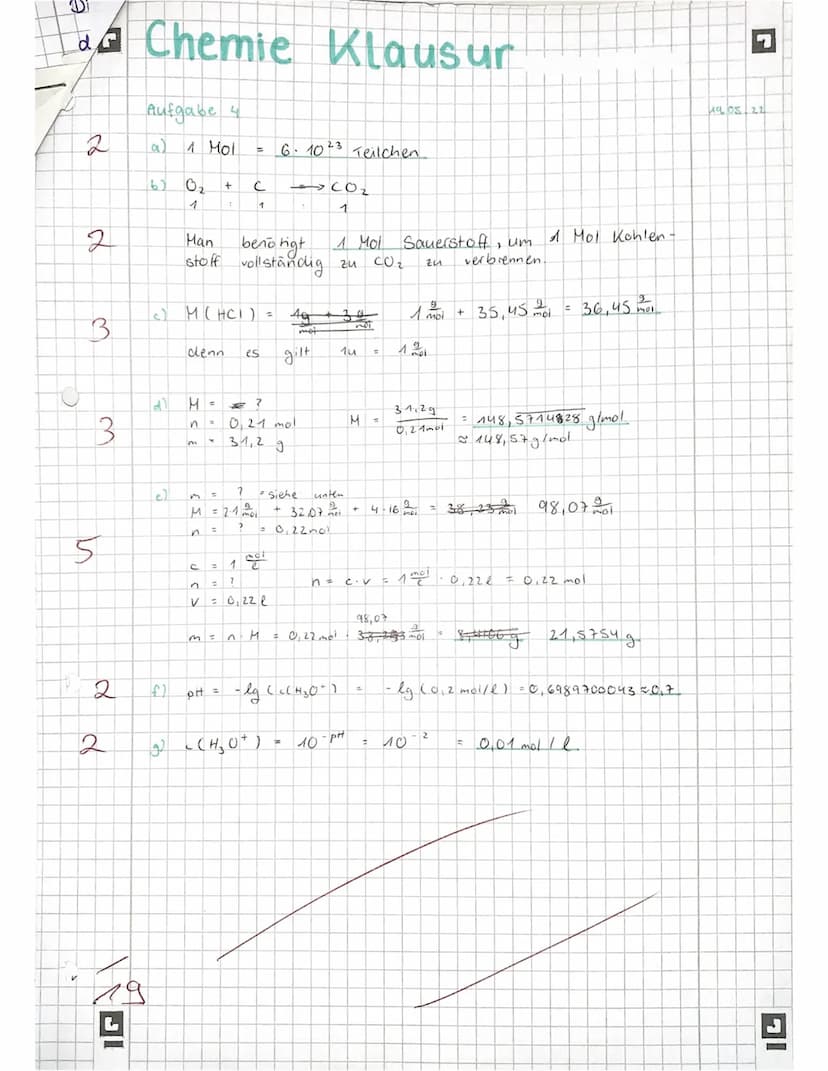 Di
d
Chemie Klausur
Aufgabe 4
19.05.22
2 a) 1 Mol = 6 · 10²³ Teilchen
b) O₂ + C → CO₂
1 : 1 : 1
2 Man benötigt 1 Mol Sauerstoff, um 1 Mol Kohlen-
stoff vollständig zu CO₂ zu verbrennen.
3 c) M(HCl) = 1 g/mol + 35,45 g/mol = 36,45 g/mol
denn es gilt 1u = 1 g/mol
d) M = ?
3 n = 0,21 mol M = 31,2g / 0,21mol = 148,5714828 g/mol
m = 31,2 g ≈ 148,57g/mol
e) m = ? → siehe unten
M = 2·1 g/mol + 32,07 g/mol + 4·16 g/mol = 98,07 g/mol
n = ? = 0,22mol
5 c = 1 mol/l
n = ? n = c·v = 1 mol/l · 0,22l = 0,22 mol
v = 0,22 l
98,07
m = n · M = 0,22mol · g/mol = 21,5754 g
2 f) pH = -lg(c(H₃O⁺) = -lg(0,2 mol/l) = 0,6989700043 ≈ 0,7
2 g) c(H₃O⁺) = 10⁻ᵖᴴ = 10⁻² = 0,01 mol/l
19